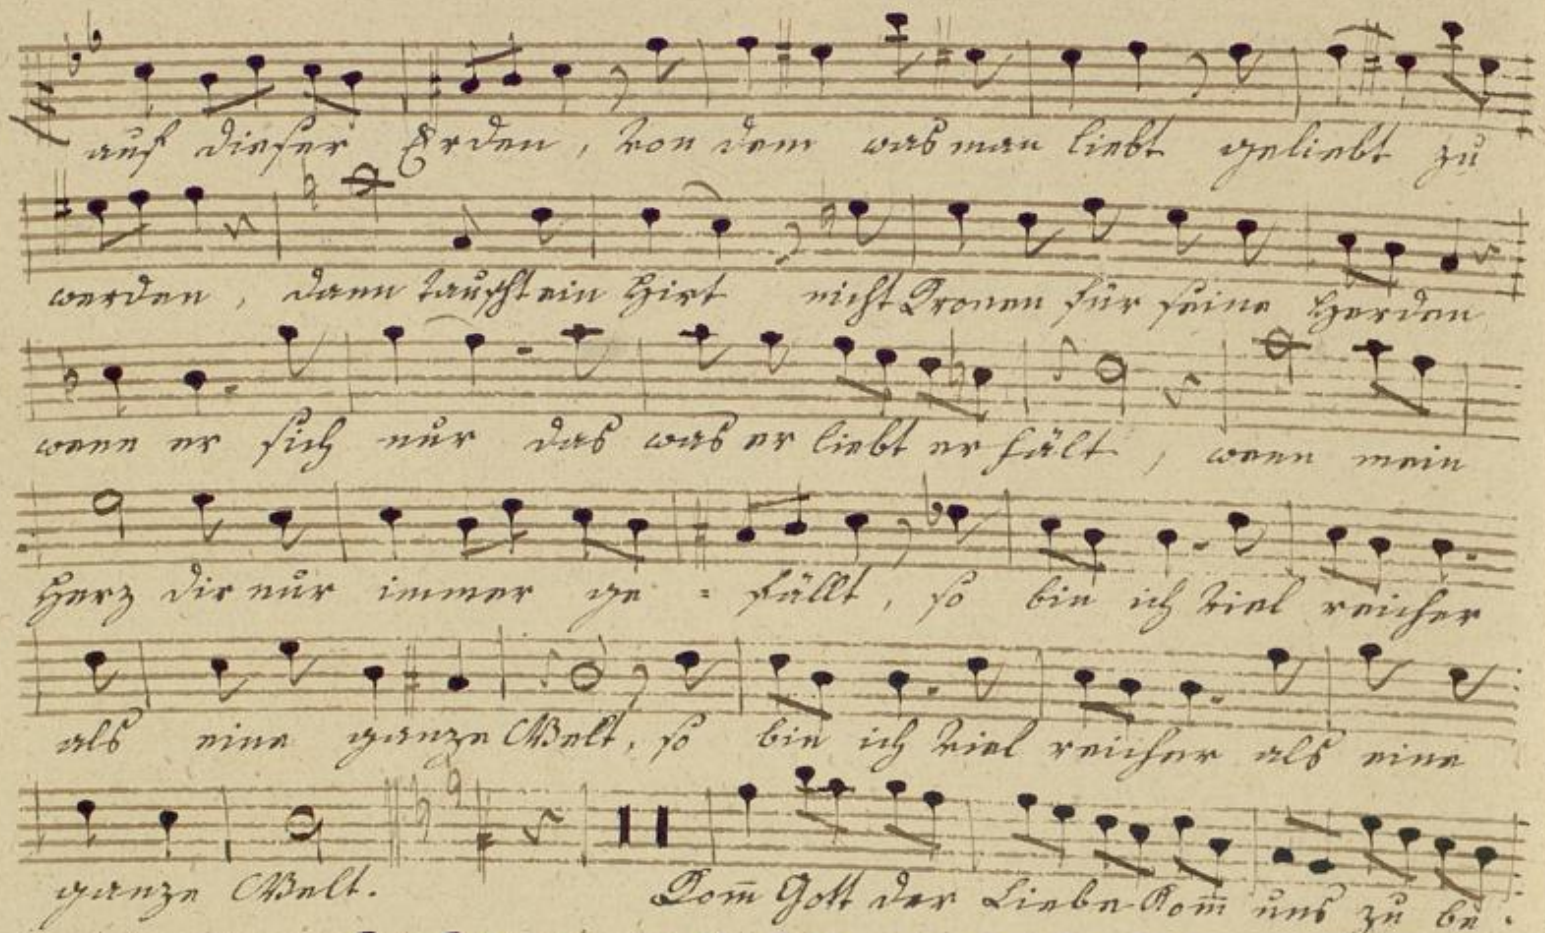 auf dieser Erden, von dem was man liebt geliebt zu
werden, dann tauscht ein Hirt nicht Kronen für seine Herden
wenn er sich nur das was er liebt erhält, wenn mein
Herz dir nur immer ge - fällt, so bin ich viel reicher
als eine ganze Welt, so bin ich viel reicher als eine
ganze Welt. Kom̄ Gott der Liebe Kom̄ uns zu be-